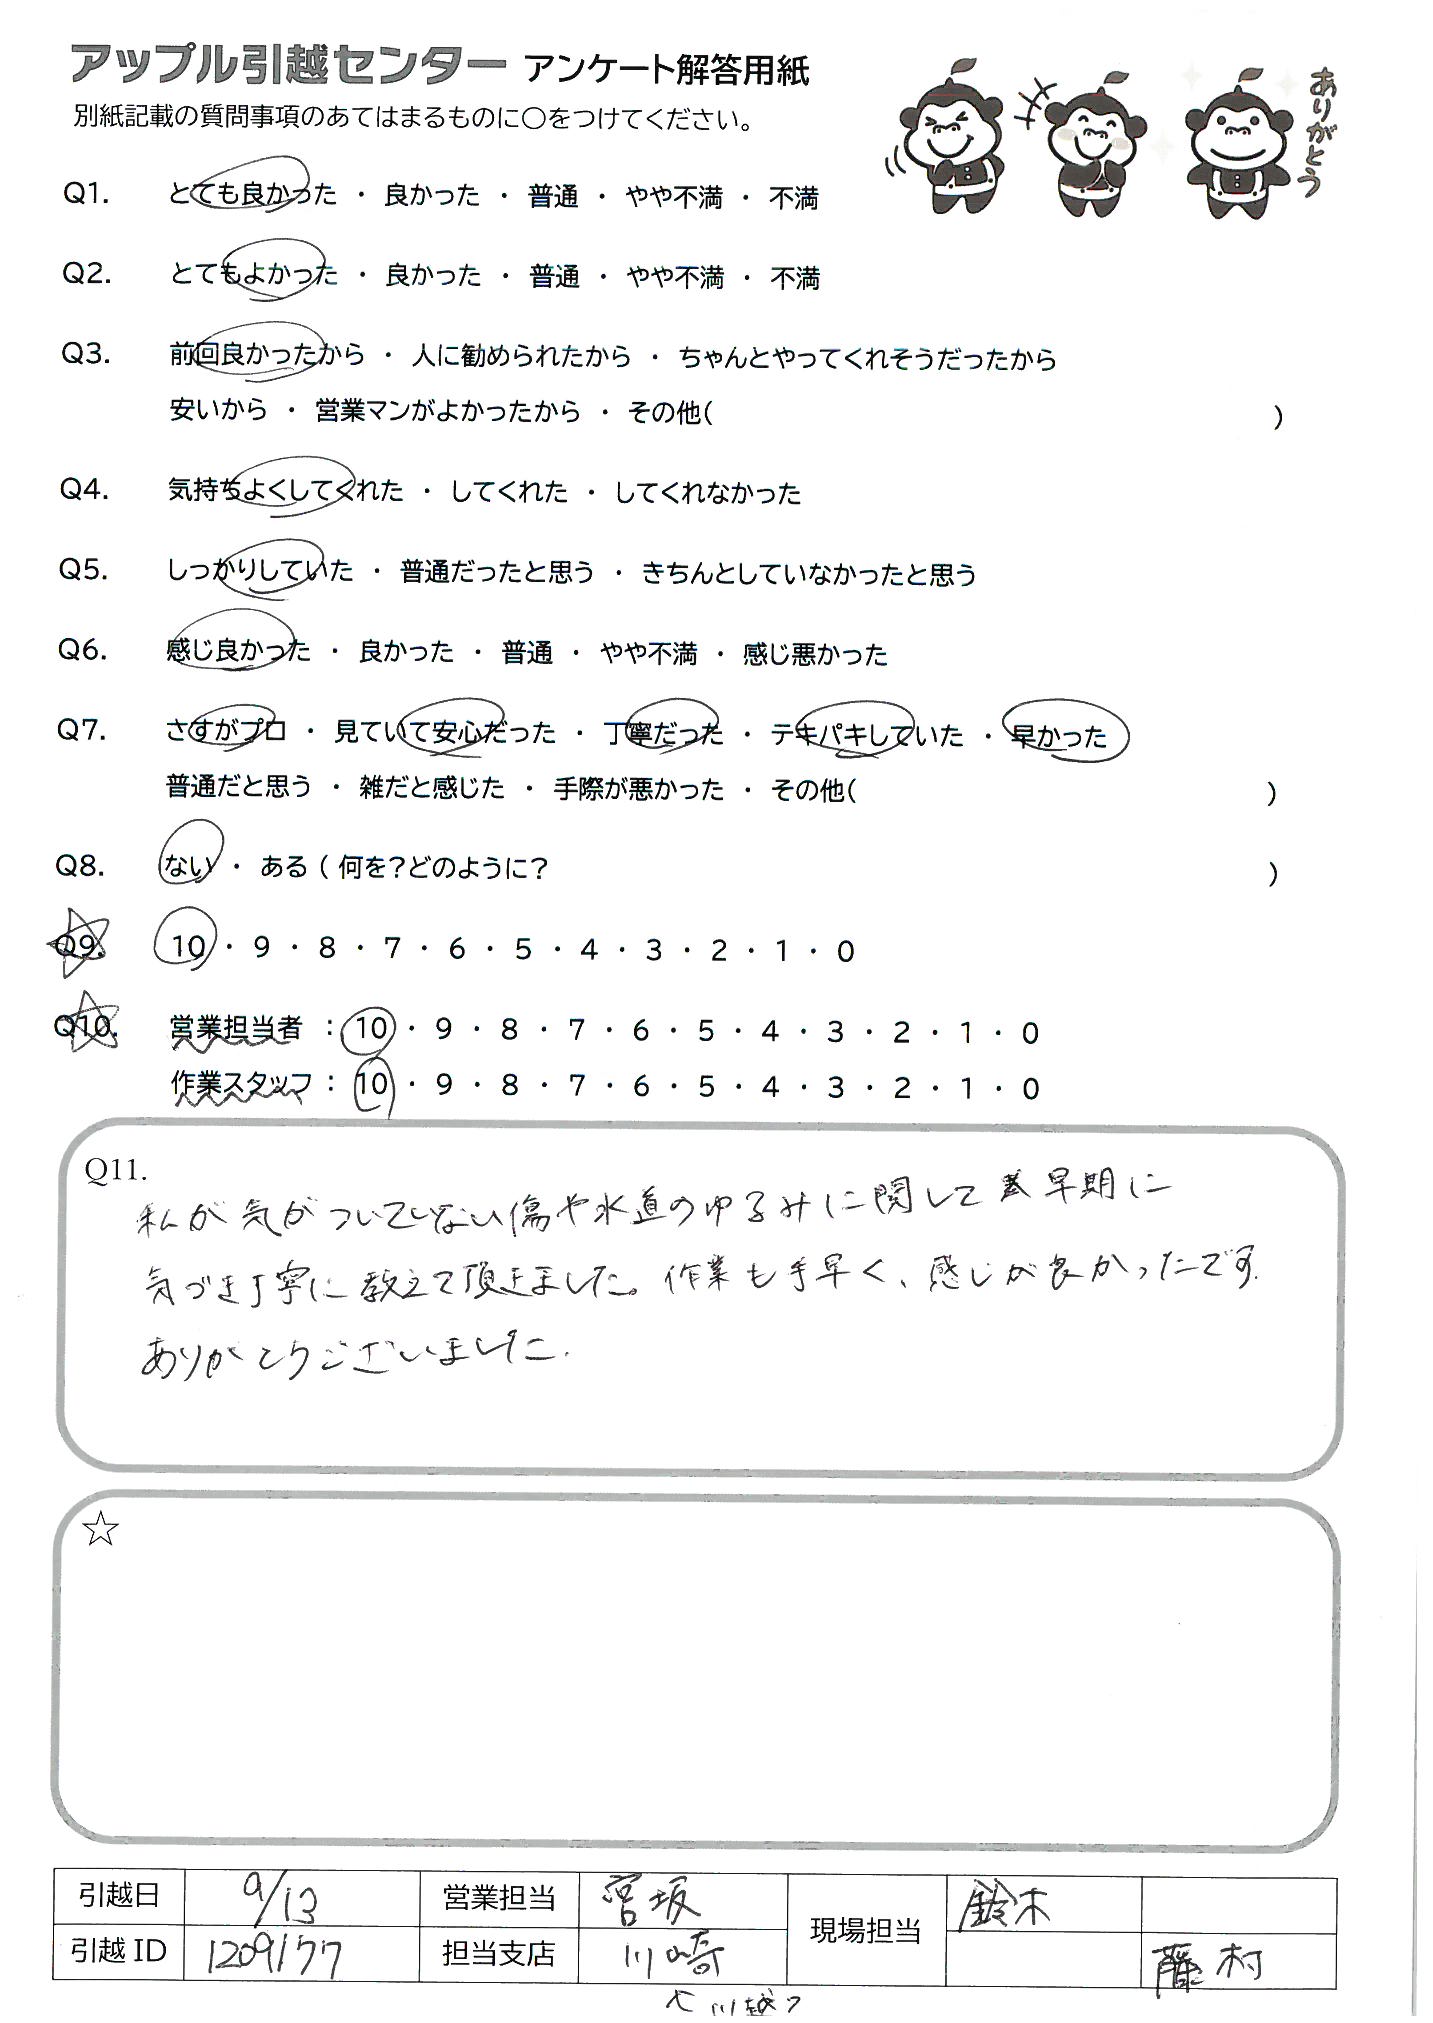 アップル引越センター アンケート解答用紙
別紙記載の質問事項のあてはまるものに○をつけてください。
ありがとう
Q1. とても良かった ・ 良かった ・ 普通 ・ やや不満 ・ 不満
Q2. とてもよかった ・ 良かった ・ 普通 ・ やや不満 ・ 不満
Q3. 前回良かったから ・ 人に勧められたから ・ ちゃんとやってくれそうだったから
安いから ・ 営業マンがよかったから ・ その他( )
Q4. 気持ちよくしてくれた ・ してくれた ・ してくれなかった
Q5. しっかりしていた ・ 普通だったと思う ・ きちんとしていなかったと思う
Q6. 感じ良かった ・ 良かった ・ 普通 ・ やや不満 ・ 感じ悪かった
Q7. さすがプロ ・ 見ていて安心だった ・ 丁寧だった ・ テキパキしていた ・ 早かった
普通だと思う ・ 雑だと感じた ・ 手際が悪かった ・ その他( )
Q8. ない ・ ある ( 何を?どのように? )
Q9. 10 ・ 9 ・ 8 ・ 7 ・ 6 ・ 5 ・ 4 ・ 3 ・ 2 ・ 1 ・ 0
Q10. 営業担当者 : 10 ・ 9 ・ 8 ・ 7 ・ 6 ・ 5 ・ 4 ・ 3 ・ 2 ・ 1 ・ 0
作業スタッフ : 10 ・ 9 ・ 8 ・ 7 ・ 6 ・ 5 ・ 4 ・ 3 ・ 2 ・ 1 ・ 0
Q11.
私が気がついていない傷や水道のゆるみに関して早期に
気づき丁寧に教えて頂きました。作業も手早く、感じが良かったです.
ありがとうございました.
☆
引越日 9/13 営業担当 宮坂 現場担当 鈴木
引越ID 1209177 担当支店 川崎 藤村